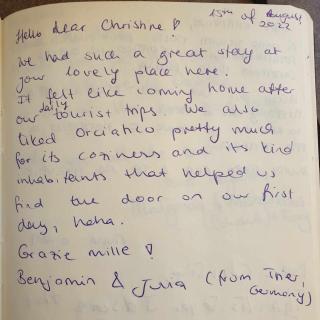 15th of August
2022
Hello dear Christine!
We had such a great stay at
your lovely place here.
It felt like coming home after
our daily tourist trips. We also
liked Orciatico pretty much
for its coziness and its kind
inhabitants that helped us
find the door on our first
day, haha.
Grazie mille!
Benjamin & Julia (from Trier,
Germany)